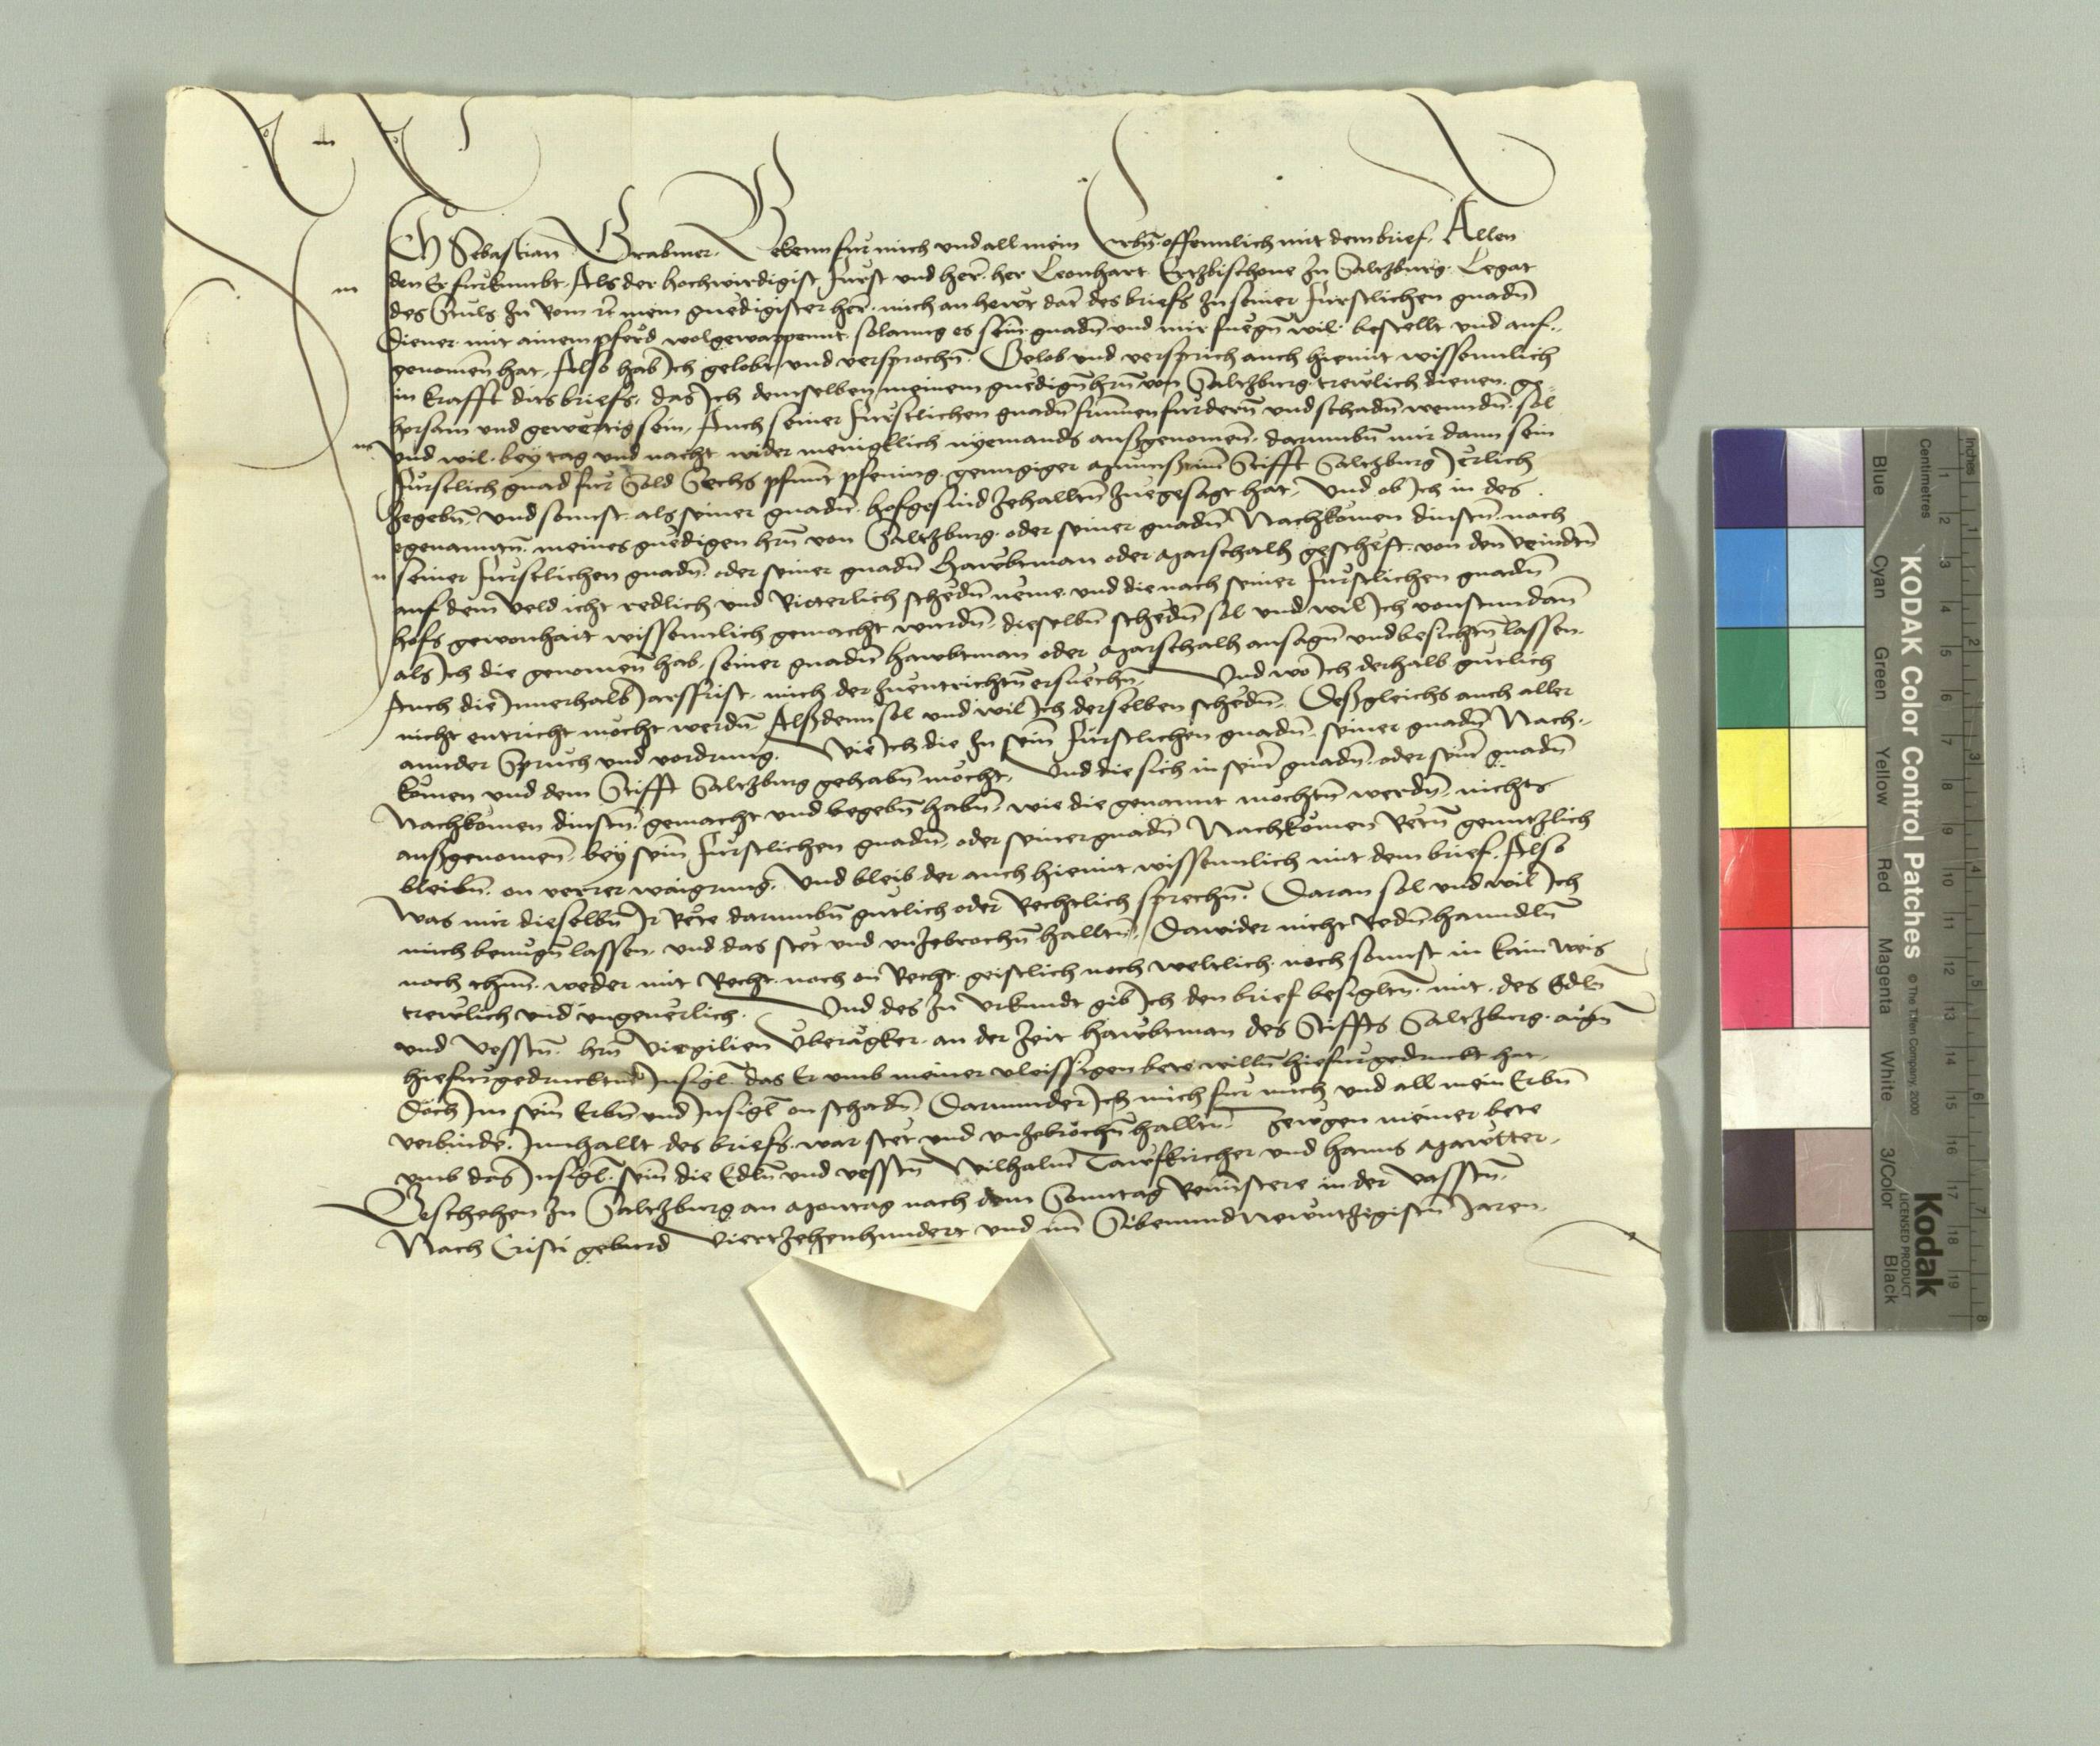 Ich Sebastian Grabmer Bekenn fur mich und all mein Erbn̄ offennlich mit dem brief, Allen
den Er furkumbt, Als der hochwirdigist Furst und her̄ her Leonhart Ertzbischove Zu Saltzburg Legat
des Stuls Zu Rom mein gnedigister her̄ mich an hewt dat des briefs Zu seiner Furstlichen gnadn̄
Diener mit ainem pferd wolgewappennt, solanng es sein gnadn̄ und mir fuegn̄ wil bestellt und auf
genomen̄ hat, Also hab Ich gelobt und versprochn̄. Gelob und versprich auch hiemit wissennlich
in krafft diss briefs, das Ich demselben meinem gnedign̄ hrn̄ von Saltzburg trewlich dienen ge=
horsam und gewertig sein, Auch seiner Furstlichen gnadn̄ frumen furdern̄ und schadn̄ wenndn̄ sol
und wil, bey tag und nacht wider menigklich nyemands ausgenomen̄, darumbn̄ mir dann sein
Furstlich gnad fur Sold Sechs pfunt pfening genngiger Munss im Stifft Saltzburg Jerlich
Zegebn̄, und sonnst als seiner gnadn̄ hofgesind Zehalltn̄ Zuegesagt hat, Und ob Ich in des
egenantn̄ meines gnedigen hrn̄ von Saltzburg oder seiner gnadn̄ Nachkomen dinstn̄ nach
seiner Furstlichen gnadn̄ oder seiner gnadn̄ Hawbtman oder Marschalh gescheft von den veindtn̄
auf dem Veld icht redlich und Ritterlich schedn̄ neme, und die nach seiner Furstlichen gnadn̄
hofs gewonhait wissennlich gemacht wurdn̄, dieselbn̄ schedn̄ sol und wil Ich vonstundan̄
als Ich die genomen̄ hab, seiner gnadn̄ hawbtman oder Marschalh ansagn̄ und besichtn̄ lassen
Auch die Innerhalb Jarsfrist mich der Zuentrichtn̄ ersuechn̄, Und wo Ich derhalb gutlich
nicht entricht mocht werdn̄, Alssdenn sol und wil Ich derselben schedn̄, Dessgleichs auch aller
annder Spruch und vordrung. Wie Ich die Zu sein Furstlichen gnadn̄, seiner gnadn̄ Nach
komen und dem Stifft Saltzburg gehabn̄ mocht, Und die sich in sein̄ gnadn̄ oder sein̄ gnadn̄
Nachkomen dinstn̄ gemacht und begebn̄ habn̄, wie die genannt mochtn̄ werdn̄, nichts
aussgenomen̄, bey sein Furstlichen gnadn̄, oder seiner gnadn̄ Nachkomen Retn̄ genntzlich
bleibn̄, on verrer waigrung, Und bleib der auch hiemit wissennlich mit dem brief, Also
Was mir dieselbn̄ Ir Rete darumbn̄ gutlich oder Rechtlich sprechn̄, Daran sol und wil Ich
mich benugn̄ lassen, und das stet und unzebrochn̄ halltn̄, Dawider nicht Redn̄ hanndln̄
noch thun̄, weder mit Recht noch on Recht, geistlich noch weltlich, noch sonnst in kain weis
trewlich und ungeverlich. Und des Zu Urkundt gib Ich den brief besigltn̄ mit des Edln̄
und Vesstn̄ hrn̄ Virgilien Uberägker an der Zeit hawbtman des Stiffts Saltzburg aign̄
hiefurgedrucktm Insigl̄, das Er umb meiner vleissigen bete willn̄ hiefurgedruckt hat,
Doch Im sein Erbn̄ und Insigl̄ on schadn̄, Darunnder Ich mich fur mich und all mein Erbn̄
verbinde, Innhallt des briefs war stet und unzebrochn̄ halltn̄, Zewgen meiner bete
umb das Insigl̄, sein die Edln̄ und vesstn̄ Wilhalm̄ Tawfkircher und Hanns Mawtter,
Geschehen Zu Saltzburg an Montag nach dem Sonntag Reministere in der Vasstn̄,
Nach Cristi geburd Viertzehenhundert und im̄ Sibenundnewntzigistn̄ Jaren.
KODAK Color Control Patches
© The Tiffen Company, 2000
Kodak
LICENSED PRODUCT
Inches
Centimetres
Blue
Cyan
Green
Yellow
Red
Magenta
White
3/Color
Black